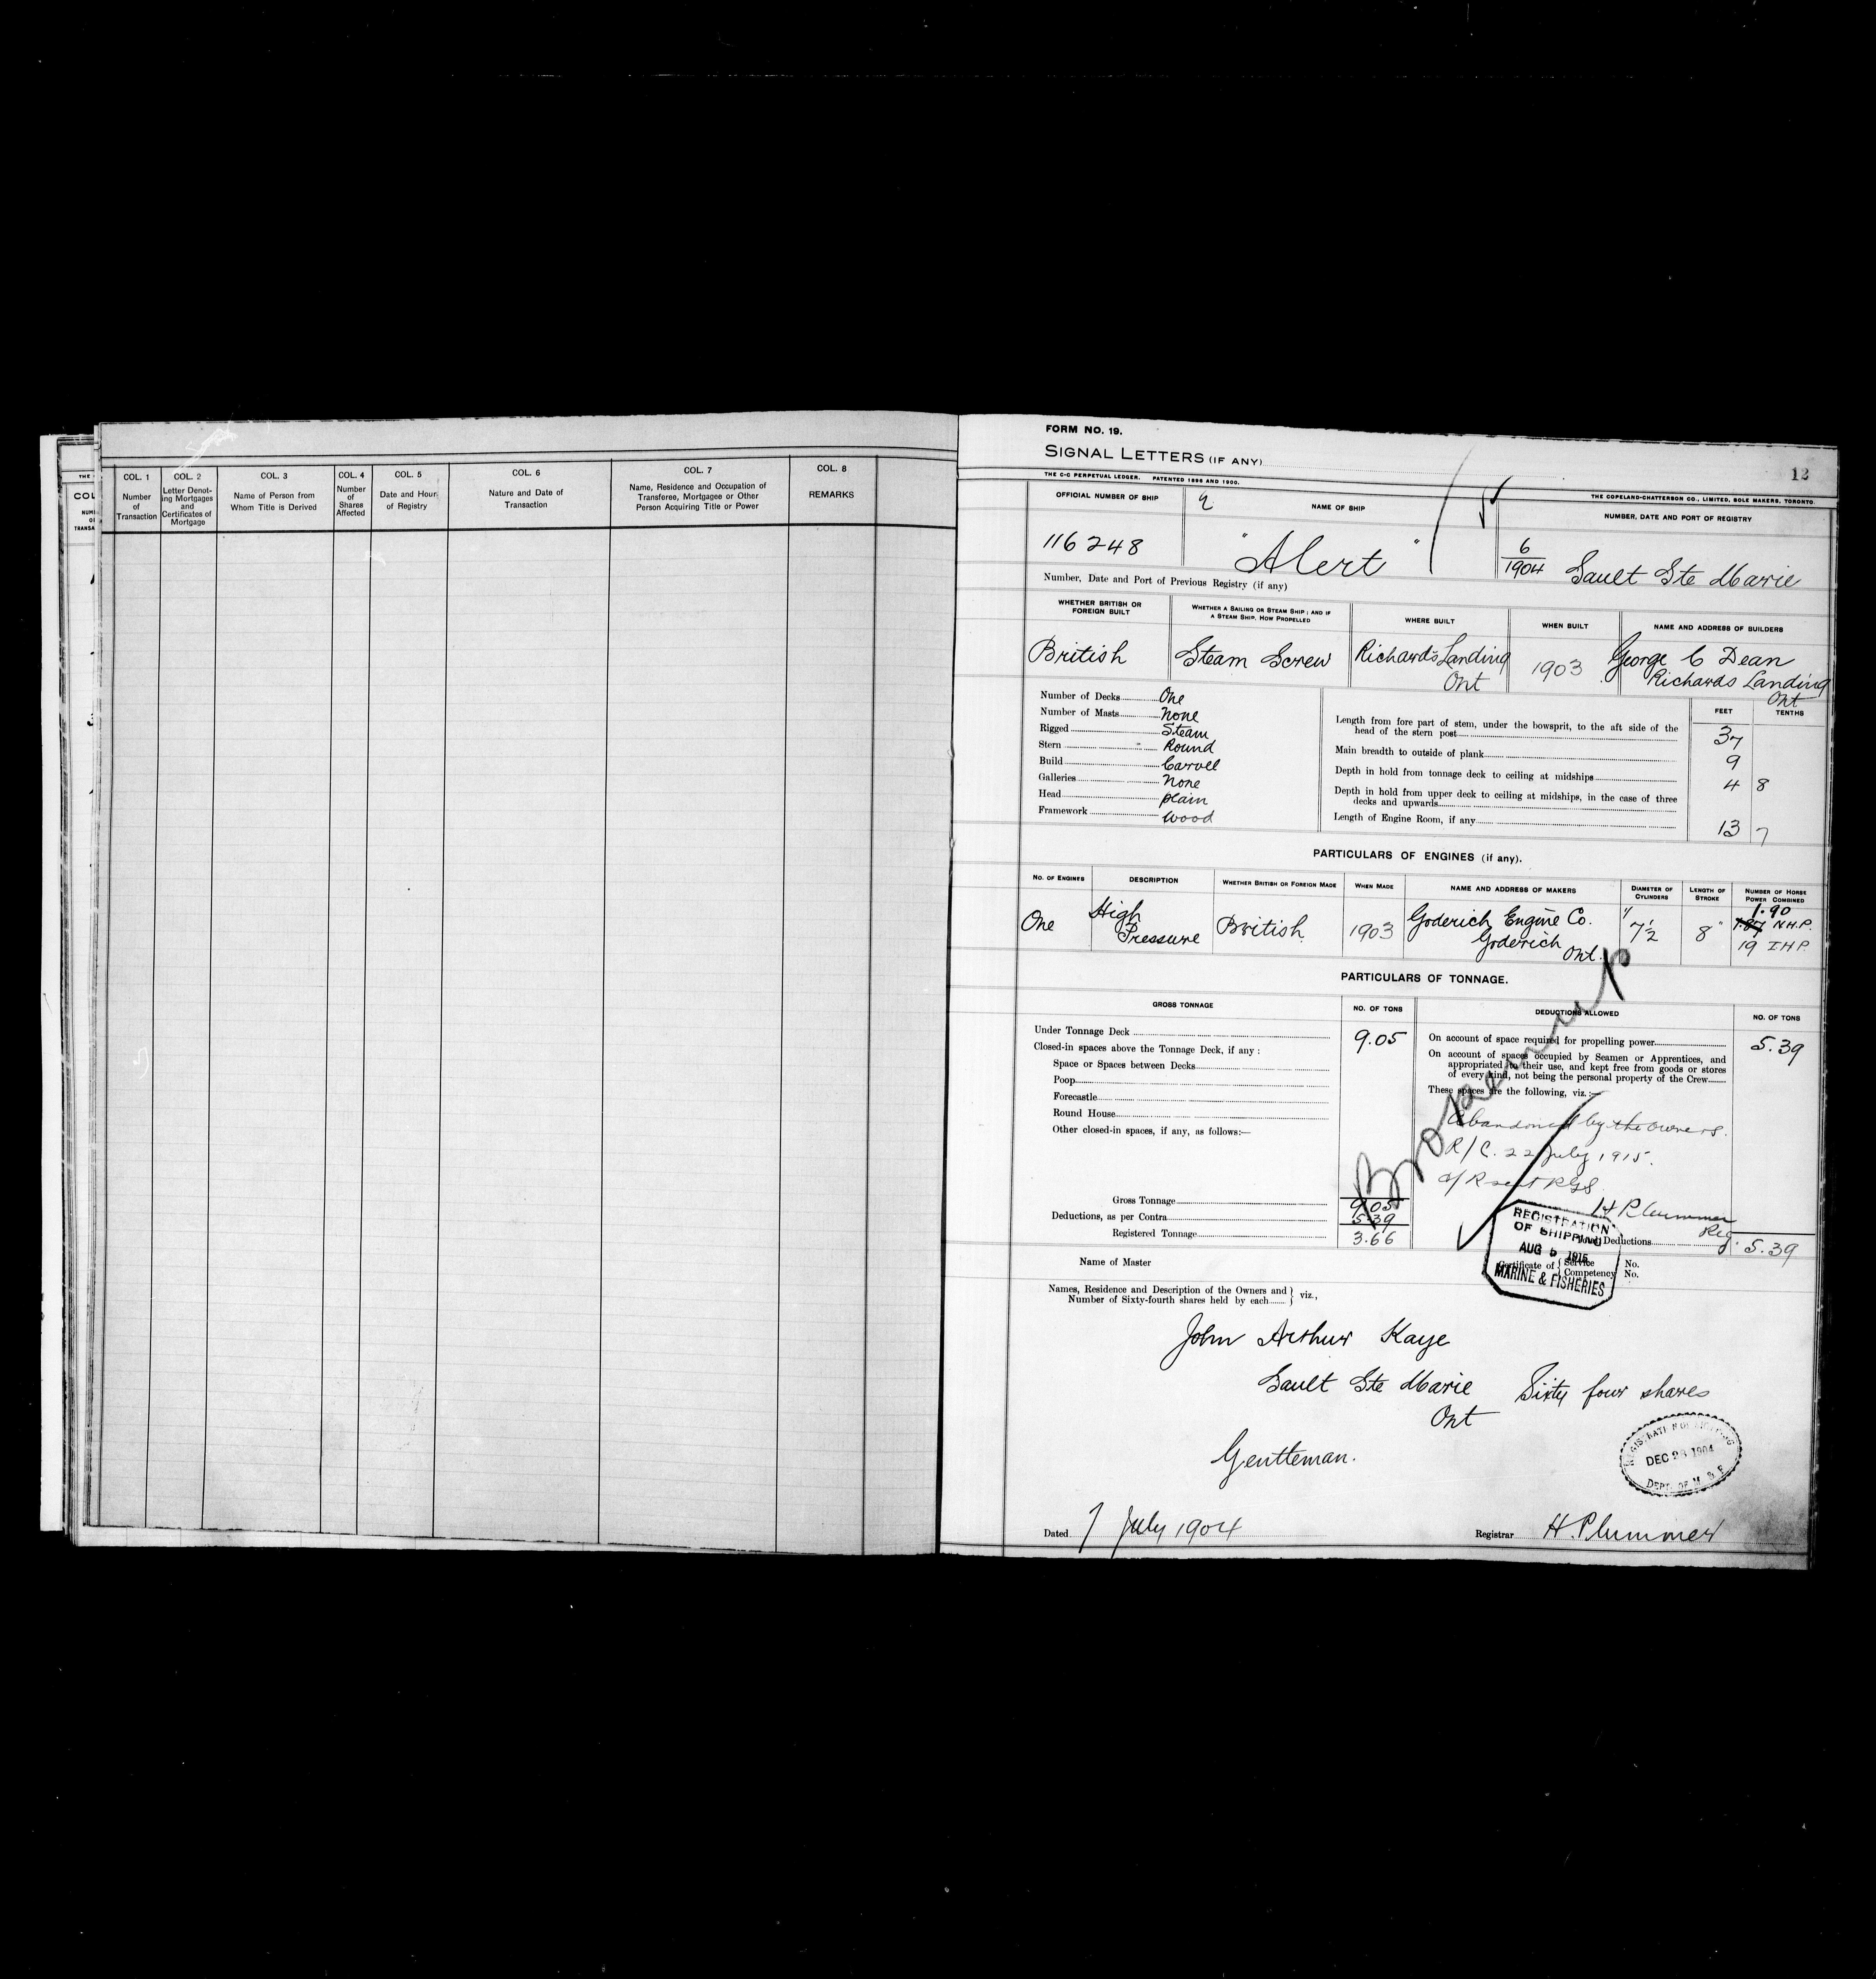 COL. 1
Number
of
Transaction
COL. 2
Letter Denot-
ing Mortgages
and
Certificates of
Mortgage
COL. 3
Name of Person from
Whom Title is Derived
COL. 4
Number
of
Shares
Affected
COL. 5
Date and Hour
of Registry
COL. 6
Nature and Date of
Transaction
COL. 7
Name, Residence and Occupation of
Transferee, Mortgagee or Other
Person Acquiring Title or Power
COL. 8
REMARKS
FORM NO. 19.
SIGNAL LETTERS (IF ANY)
12
THE C-C PERPETUAL LEDGER. PATENTED 1896 AND 1900.
THE COPELAND-CHATTERSON CO., LIMITED, SOLE MAKERS, TORONTO.
OFFICIAL NUMBER OF SHIP
NAME OF SHIP
NUMBER, DATE AND PORT OF REGISTRY
116248
"Alert"
6/1904 Sault Ste Marie
Number, Date and Port of Previous Registry (if any)
WHETHER BRITISH OR
FOREIGN BUILT
WHETHER A SAILING OR STEAM SHIP; AND IF
A STEAM SHIP, HOW PROPELLED
WHERE BUILT
WHEN BUILT
NAME AND ADDRESS OF BUILDERS
British
Steam Screw
Richards Landing
Ont
1903
George C Dean
Richards Landing
Ont
Number of Decks One
Number of Masts None
Rigged Steam
Stern Round
Build Carvell
Galleries None
Head plain
Framework wood
FEET TENTHS
Length from fore part of stem, under the bowsprit, to the aft side of the
head of the stern post 37
Main breadth to outside of plank 9
Depth in hold from tonnage deck to ceiling at midships 4 8
Depth in hold from upper deck to ceiling at midships, in the case of three
decks and upwards
Length of Engine Room, if any 13 7
PARTICULARS OF ENGINES (if any).
NO. OF ENGINES
DESCRIPTION
WHETHER BRITISH OR FOREIGN MADE
WHEN MADE
NAME AND ADDRESS OF MAKERS
DIAMETER OF
CYLINDERS
LENGTH OF
STROKE
NUMBER OF HORSE
POWER COMBINED
One
High
Pressure
British
1903
Goderich Engine Co.
Goderich
Ont.
7½"
8"
1.90
1.87 N.H.P.
19 I.H.P.
PARTICULARS OF TONNAGE.
GROSS TONNAGE
NO. OF TONS
DEDUCTIONS ALLOWED
NO. OF TONS
Under Tonnage Deck 9.05
Closed-in spaces above the Tonnage Deck, if any:
Space or Spaces between Decks
Poop
Forecastle
Round House
Other closed-in spaces, if any, as follows:—
Gross Tonnage 9.05
Deductions, as per Contra 5.39
Registered Tonnage 3.66
On account of space required for propelling power 5.39
On account of spaces occupied by Seamen or Apprentices, and
appropriated to their use, and kept free from goods or stores
of every kind, not being the personal property of the Crew
These spaces are the following, viz.:—
Broken up
Abandoned by the owners.
R/C. 22 July 1915.
H Plummer
Reg.
Deductions 5.39
REGISTRATION
OF SHIPPING
AUG 5 1915
MARINE & FISHERIES
Name of Master
Certificate of { Service No.
Competency No.
Names, Residence and Description of the Owners and } viz.,
Number of Sixty-fourth shares held by each
John Arthur Kaye
Sault Ste Marie Sixty four shares
Ont
Gentleman.
DEC 28 1904
DEPT. OF M. & F.
Dated 7 July 1904
Registrar H. Plummer